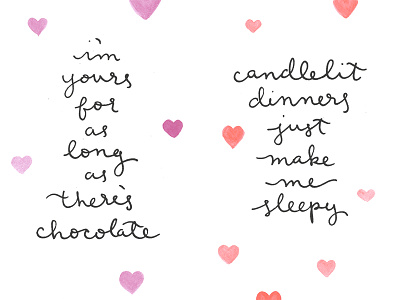 i'm
yours
for
as
long
as
there's
chocolate
candlelit
dinners
just
make
me
sleepy